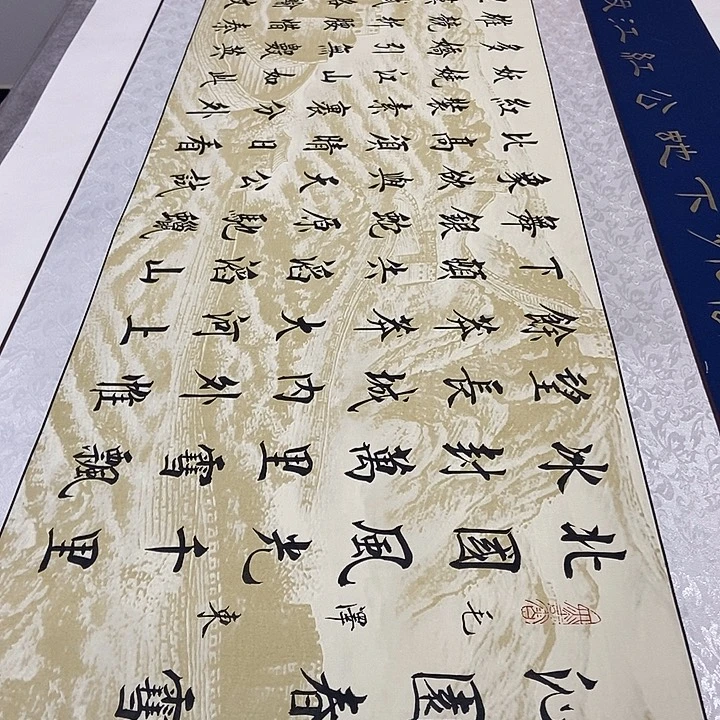 沁園春雪
毛澤東
北國風光千里
冰封萬里雪飄
望長城內外惟
餘莽莽大河上
下頓失滔滔山
舞銀蛇原馳蠟
象欲與天公試
比高須晴日看
紅裝素裹分外
妖嬈江山如此
多嬌引無數英
雄競折腰惜秦
江紅